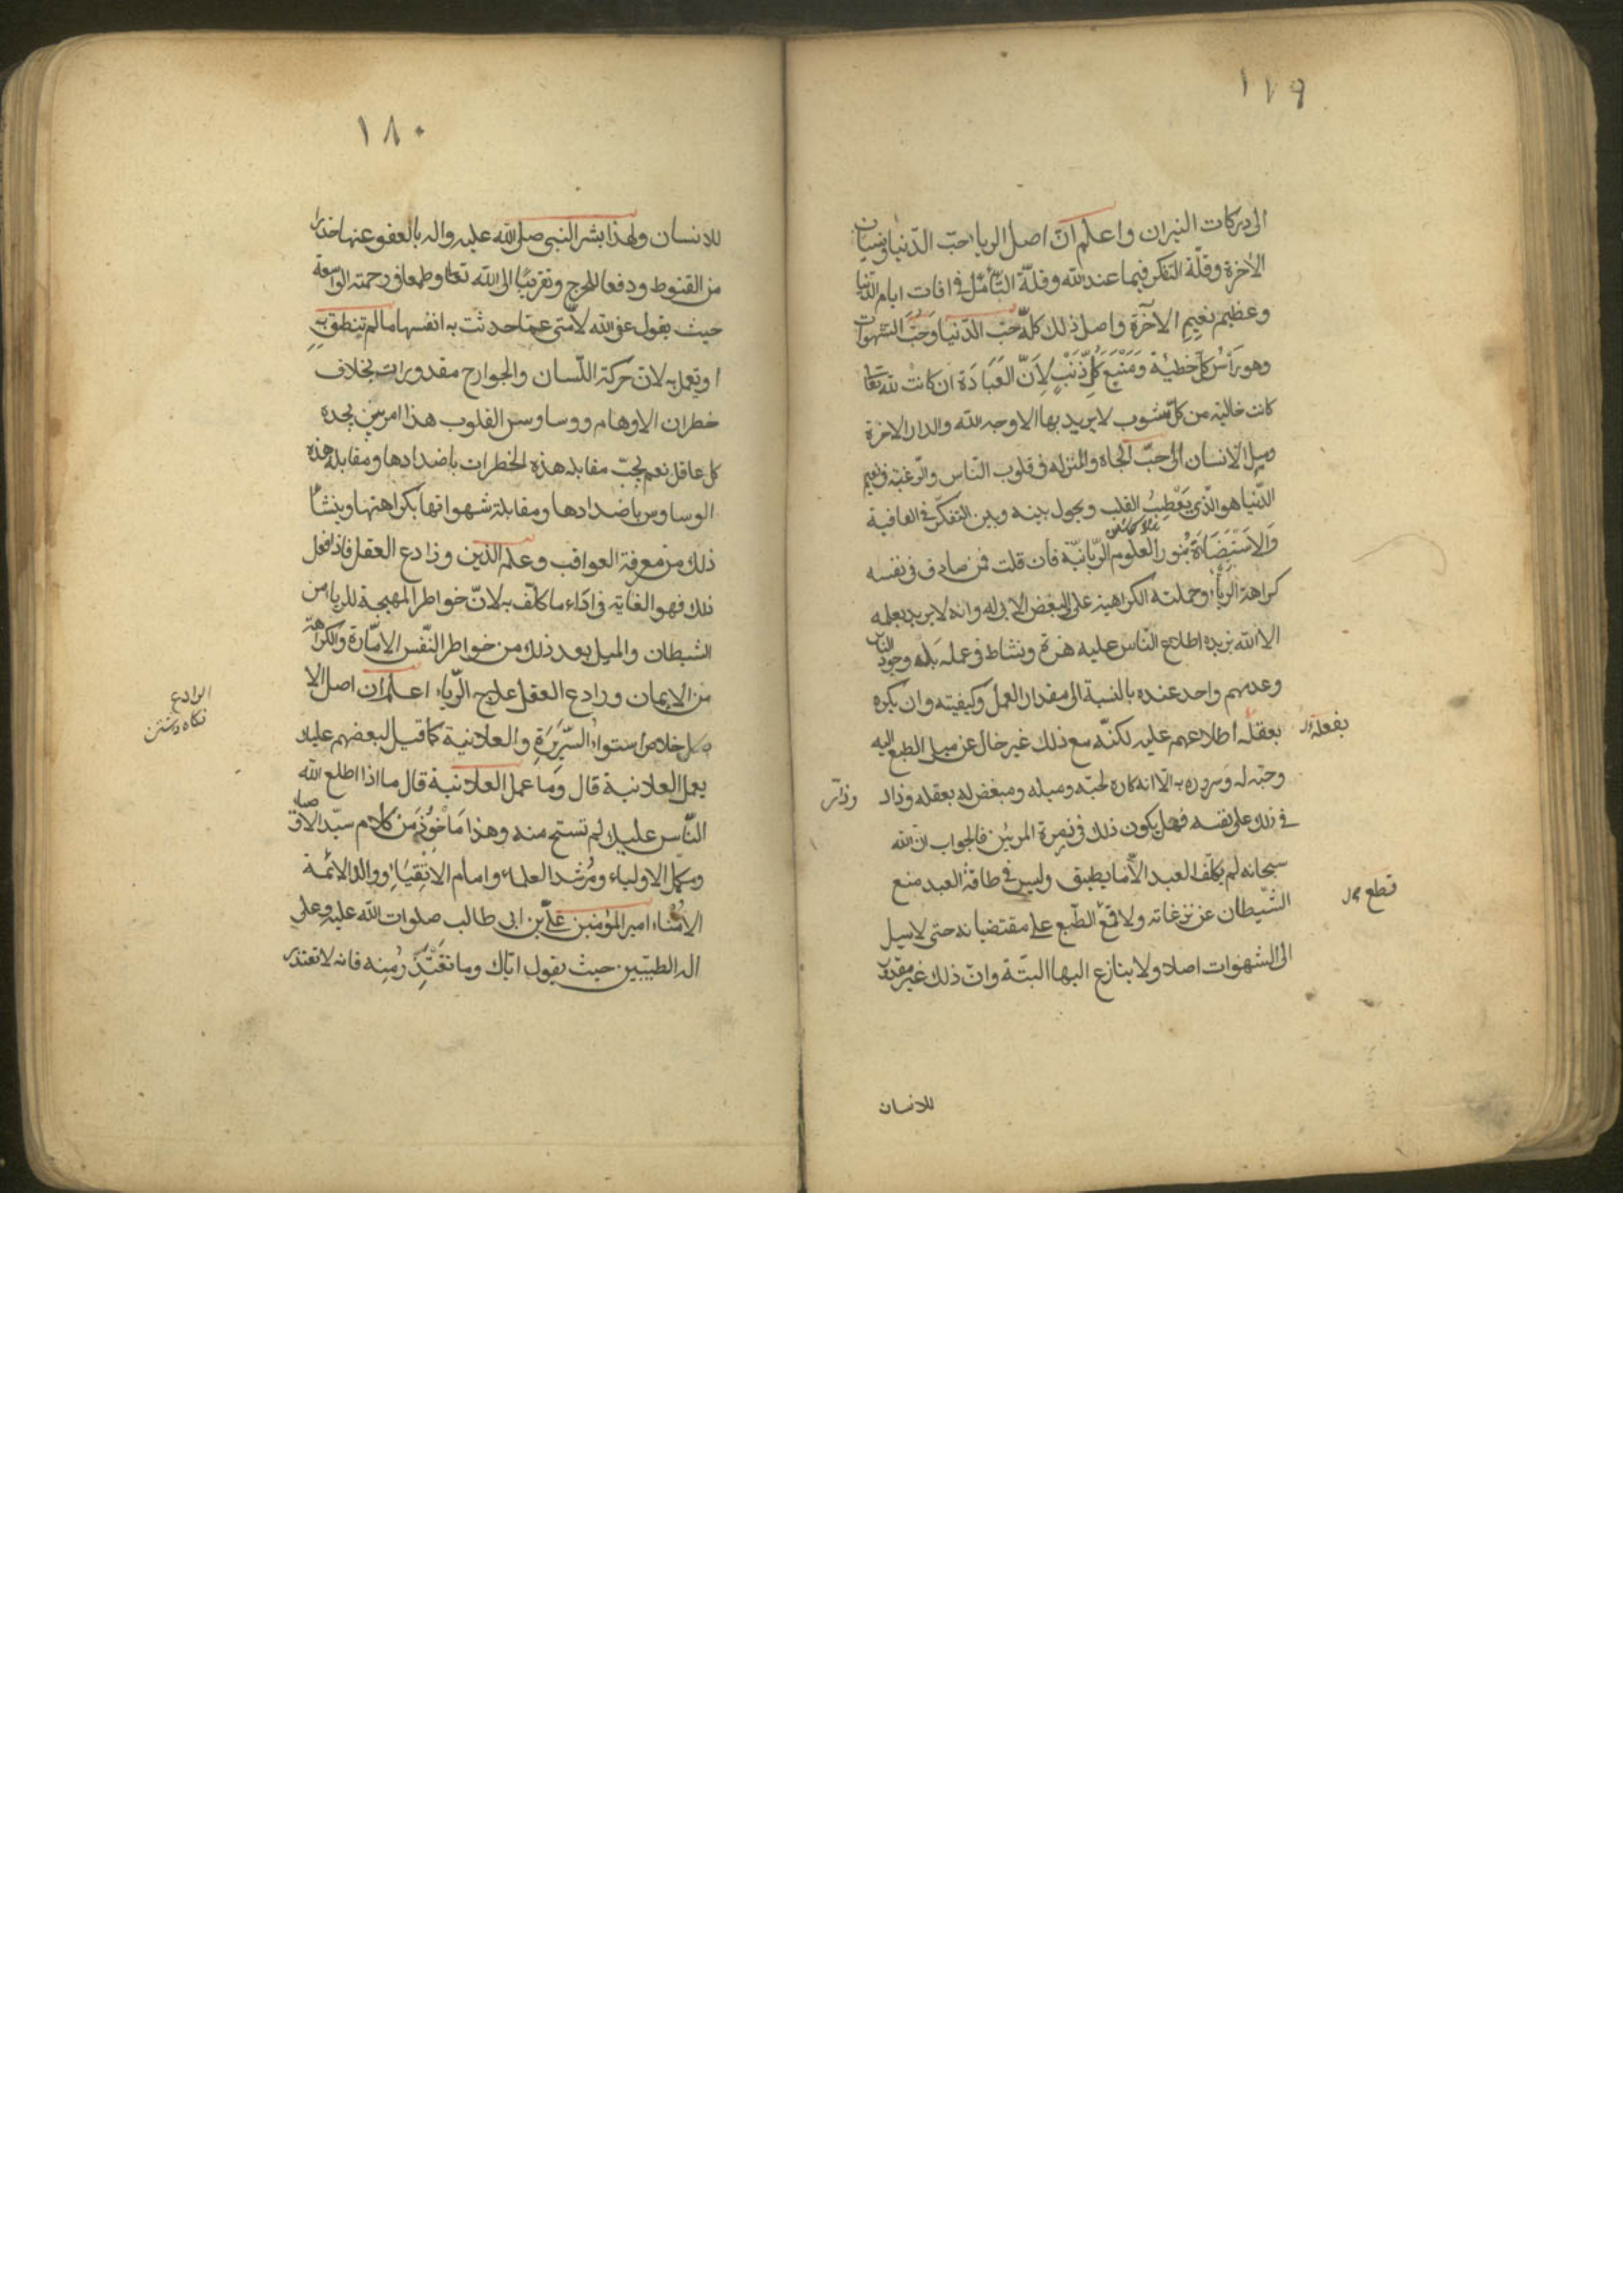 ١٧٩
الى دركات النيران واعلم انّ اصل الريا حبّ الدّنيا ونسيان
الاخرة وقلّة التفكر فيما عند الله وقلّة التأمّل فى افات ايام الدّنيا
وعظيم نعيم الآخرة واصل ذلك كلّه حبّ الدّنيا وحبّ الشهوات
وهو رأس كلّ خطيئة ومنبع كلّ ذنب لانّ العبادة ان كانت لله تعالى
كانت خالية من كلّ شوب لا يريد بها الا وجه الله والدار الاخرة
وميل الانسان الى حبّ الجاه والمنزلة فى قلوب النّاس والرّغبة فى نعيم
الدّنيا هو الّذى يعطب القلب ويحول بينه وبين التفكّر فى العاقبة
والاستضاءة بنور العلوم الرّبانيّة فان قلت فمن صادف فى نفسه
كراهة الرياء وحملته الكراهية على البغض الابى له وانه لا يريد بعمله
الا الله يزيده اطلاع النّاس عليه هزة ونشاط فى عمله بله وجود النّاس
وعدمهم واحد عنده بالنسبة الى مقدار العمل وكيفيته وان يكره
بعقله اطلاعهم عليه لكنّه مع ذلك غير خال عن ميل الطبع اليه
بفعله
وحبّه له وسروره به الّا انه كاره لحبّه وميله ومبغض له بعقله وزاد
فى ذلك على نفسه فهل يكون ذلك فى زمرة المرئين فالجواب ان الله
سبحانه لم يكلّف العبد الّا ما يطيق وليس فى طاقة العبد منع
الشّيطان عن نزغاته ولا قمع الطّبع على مقتضياته حتى لا يميل
قطع
الى الشهوات اصلا ولا ينازع اليها البتّة وانّ ذلك غير مقدور
للانسان
١٨٠
للانسان ولهذا بشر النبى صلى الله عليه واله بالعفو عنها حذرا
من القنوط ودفعا للحرج وتقريبًا الى الله تعالى وطمعا فى رحمته الواسعة
حيث يقول عفى الله لامّتى عمّا حدثت به انفسها ما لم تنطق به
او تعمل به لانّ حركة اللّسان والجوارح مقدورات بخلاف
خطران الاوهام ووساوس القلوب هذا امر بيّن يجده
كل عاقل نعم يجب مقابلة هذه الخطرات باضدادها ومقابلة هذه
الوساوس باضدادها ومقابلة شهواتها بكراهتها وينشأ
ذلك من معرفة العواقب وعلم الدّين وزادع العقل فاذا فعل
ذلك فهو الغاية فى اداء ما كلّف به لانّ خواطر المهيجة للرياء من
الشيطان والميل بعد ذلك من خواطر النّفس الامّارة والكراهة
من الايمان ورادع العقل علاج الرّياء اعلم ان اصل الا
الرادع
نگاه داشتن
خلاص استواء السّريرة والعلانية كما قيل لبعضهم عليك
بعمل العلانية قال وما عمل العلانية قال ما اذا اطلع الله
النّاس عليك لم تستح منه وهذا مأخوذ من كلام سيّد الا
ومكمل الاولياء ومرشد العلماء وامام الاتقياء ووالد الائمة
الامناء امير المؤمنين علىّ بن ابى طالب صلوات الله عليه وعلى
اله الطيّبين حيث يقول ايّاك وما تعتذر منه فانه لا تعتذر